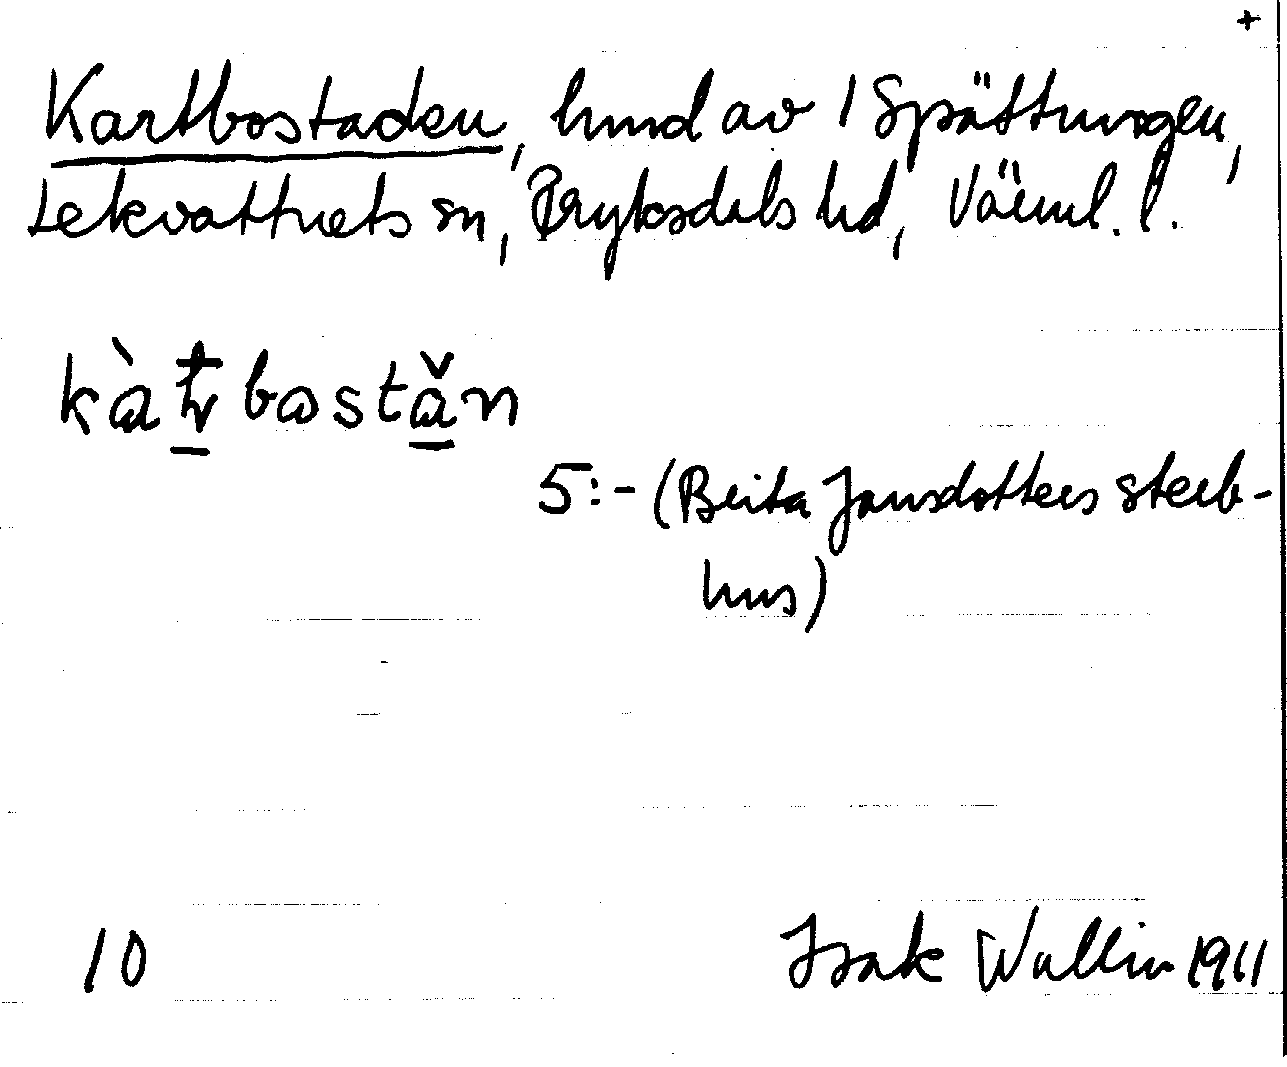 +
Kartbostaden, hmd av 1 Spättungen,
Lekvattnets sn, Fryksdals hd, Värml. l.
kàt̲r bostǎ̲n
5:- (Brita Jansdotters sterb-
hus)
10 Isak Wallin 1911